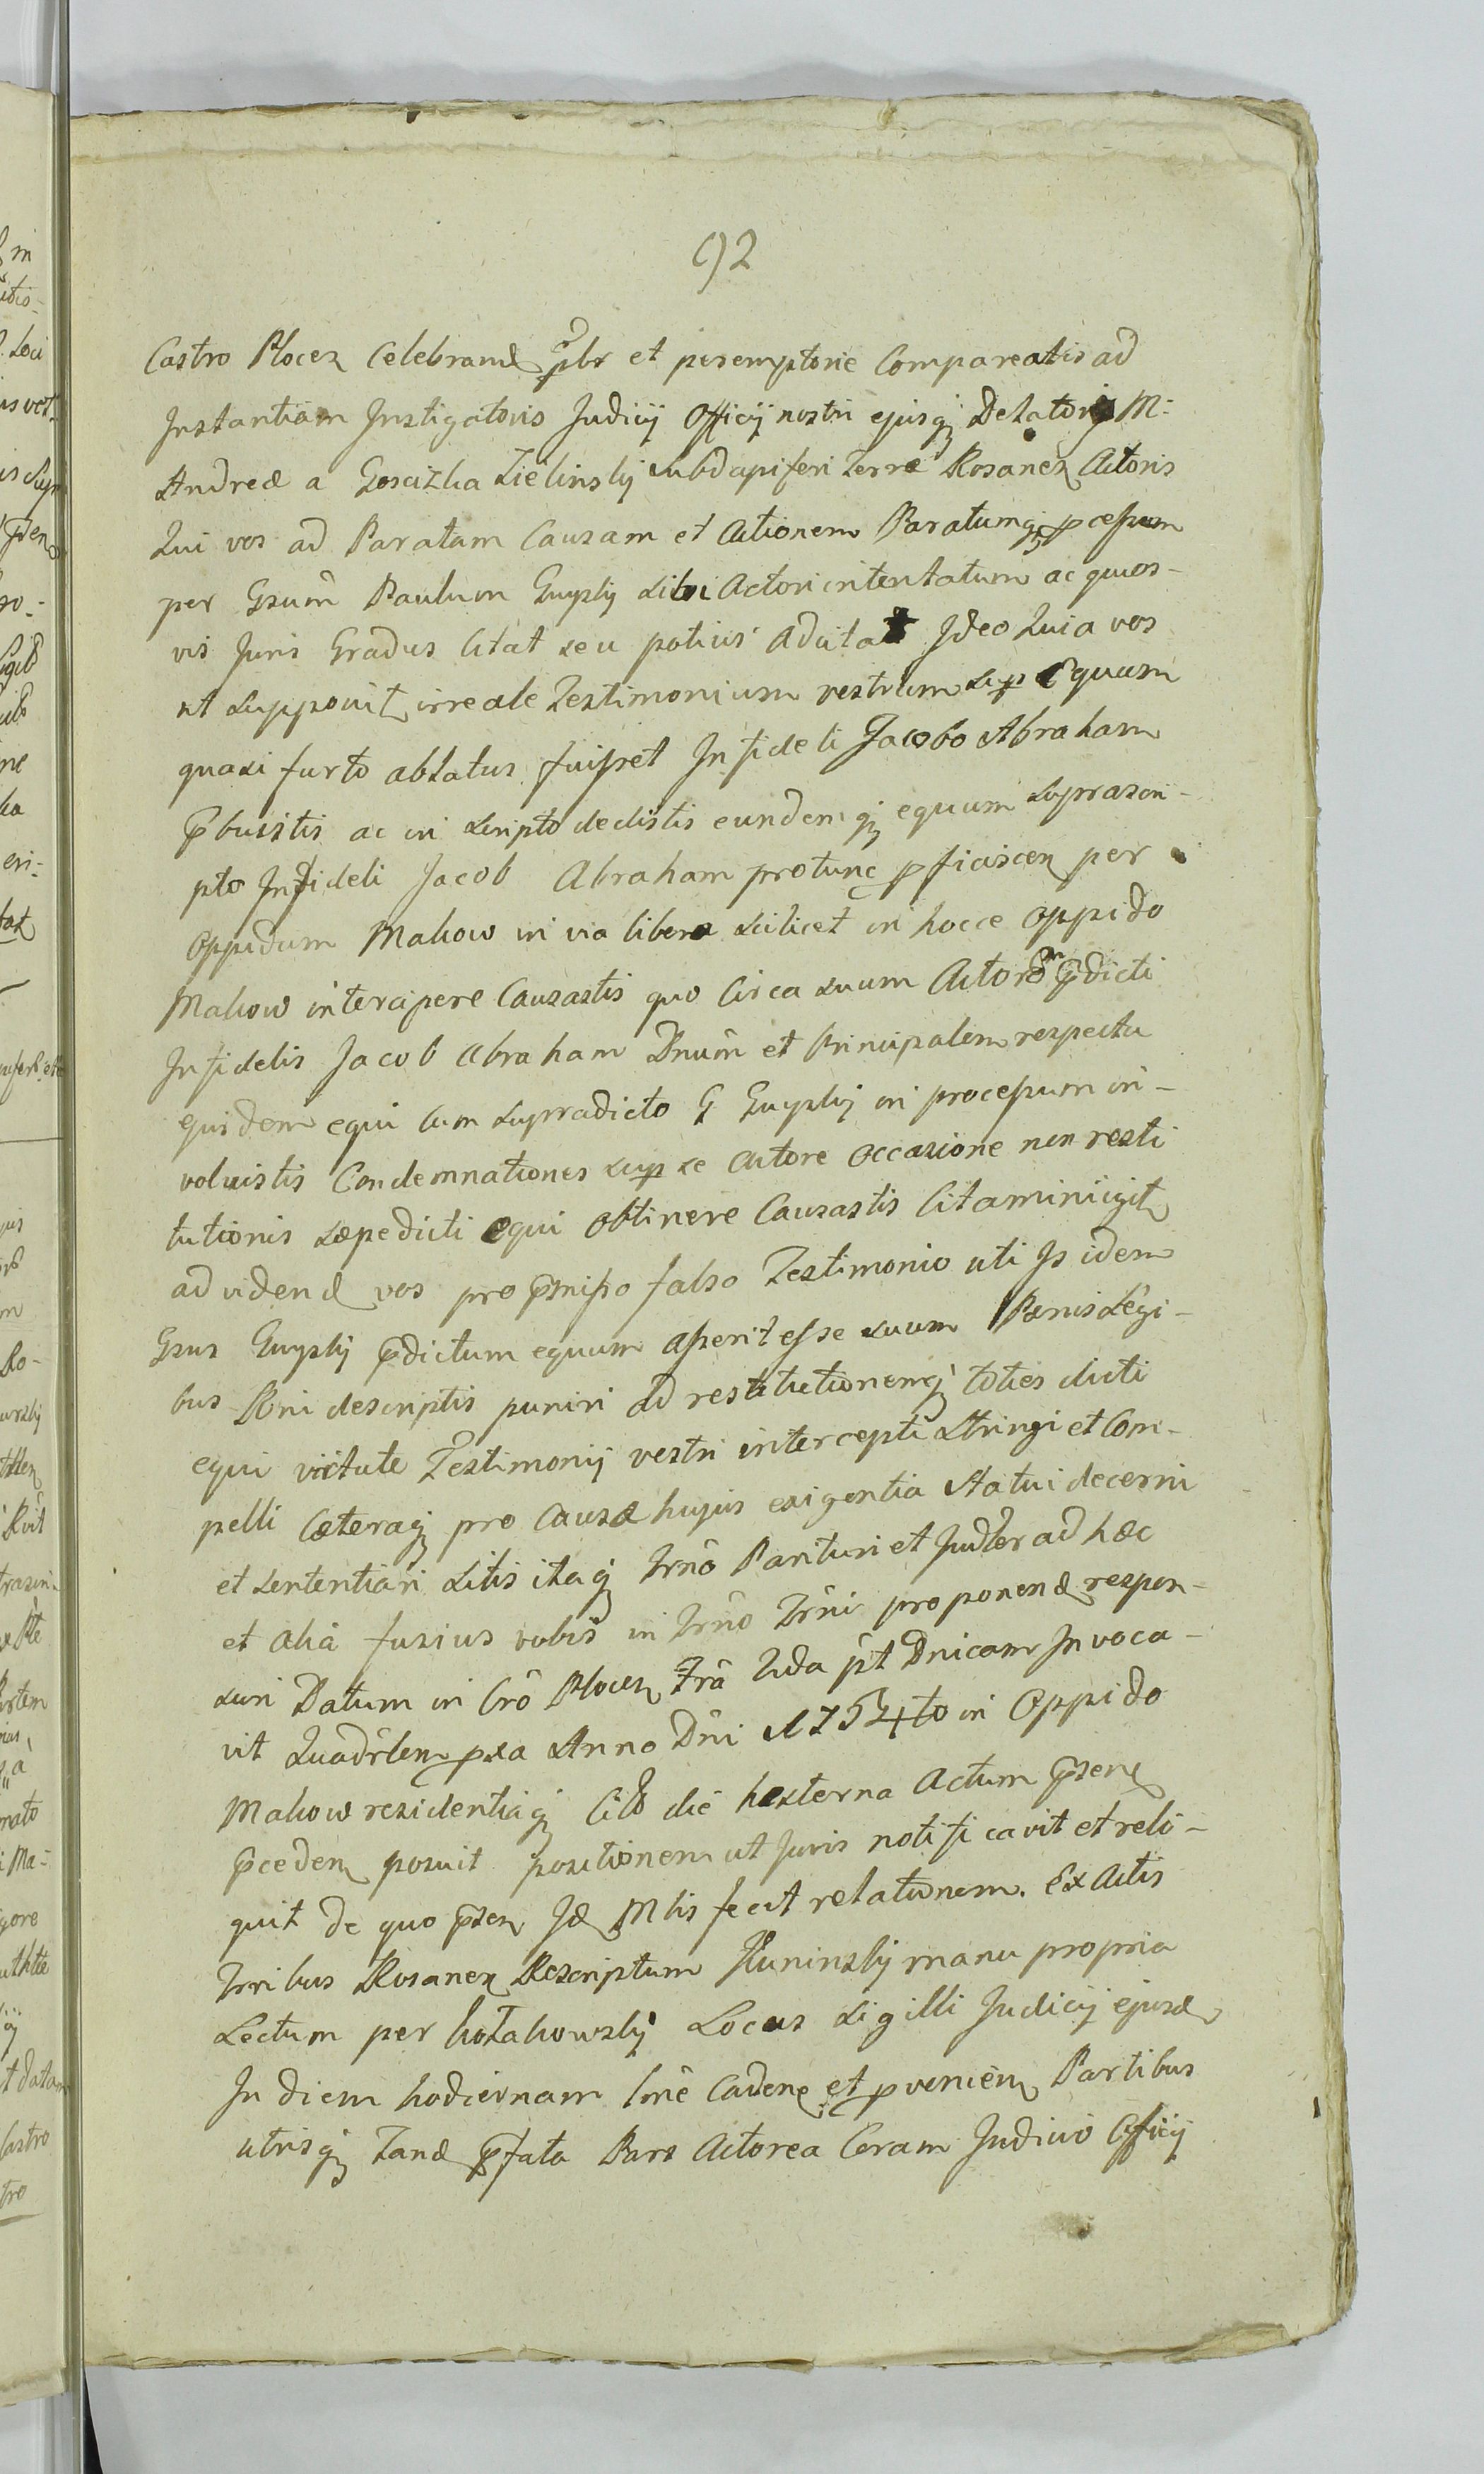 92
Castro Plocen Celebrand pbr et peremptorie Compareatis ad
Instantiam Instigatoris Judicij Officij nostri ejusq Delatoris M:
Andreæ a Goscizka Zielinsky Subdapiferi Terræ Rosanen Actoris
Qui vos ad Paratam Causam et Actionem Paratumq pcessum
per Gsum Paulum sibi Actori intentatum ac quos-
vis Juris Gradus Citat seu potius Adcitat Ideo Quia vos
ut Supponit irreale Testimonium vestrum sup Equum
quasi furto ablatus fuisset Infideli Jacobo Abraham
pbuistis ac in Scripto dedistis eundemq equum suprascri-
pto Infideli Jacob Abraham protunc pficiscen per
Oppidum Makow in via libera scilicet in hocce Oppido
Makow intercipere Causastis quo Circa suum Actorem pdicti
Infidelis Jacob Abraham Dnum et Principalem respectu
ejusdem equi Cum supradicto G in processum in-
volvistis Condemnationes sup se Actore Occasione non resti
tutionis sæpedicti equi Obtinere Causastis Citamini igit
ad vidend vos pro pmisso falso Testimonio uti Is idem
Gsus pdictum equum asserit esse suum Pænis Legi-
bus Rni descriptis puniri ad restitutionemq toties dicti
equi virtute Testimonij vestri intercepti Stringi et Com-
pelli Cæteraq pro Causæ hujus exigentia Statui decerni
et Sententiari Sitis itaq Trno Parituri et Judter ad hæc
et alia fusius vobis in Trno Trni proponend respon-
suri Datum in Cro Plocen Fra 2da pt Dnicam Invoca-
vit Quadrlem pxa Anno Dni 1754to in Oppido
Makow residentiaq Cito die hesterna Actum psens
pcedens posuit positionem ut Juris notificavit et reli-
quit de quo psen Id Mlis fecit relationem. Ex Actis
Trribus Rosanen Rescriptum Kuninsky manu propria
Lectum per Locus Sigilli Judicij ejusd
In diem hodiernam Cadens et pveniens Partibus
utrisq Tand pfata Pars Actorea Coram Judicio Officij